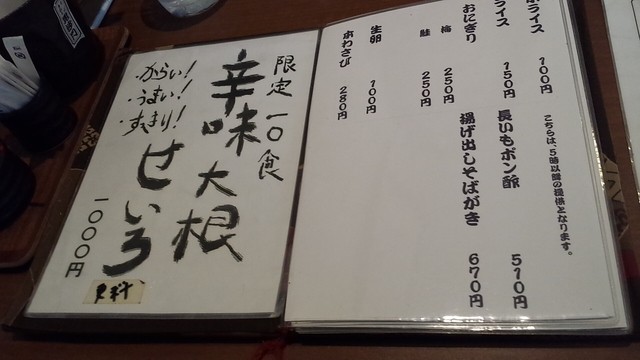 ライス 100円
ライス 150円
おにぎり
梅 250円
鮭 250円
生卵 100円
本わさび 280円
こちらは、5時以降の提供となります。
長いもポン酢 510円
揚げ出しそばがき 670円
限定一〇食
辛味大根
せいろ
・からい!
・うまい!
・すっきり!
一〇〇〇円